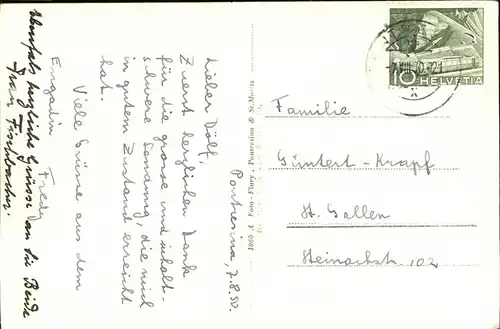 Pontresina, 7.8.50.
Lieber Dölf,
Zuerst herzlichen Dank
für die grosse und inhalt-
schwere Sendung, die mich
in gutem Zustand erreicht
hat.
Viele Grüsse aus dem
Engadin Fredy
Ebenfalls herzliche Grüsse an Sie Beide
Frau Fischbacher.
Foto - Flury - Pontresina & St. Moritz
HELVETIA
10
Familie
Güntert-Krapf
St. Gallen
Steinachstr. 102